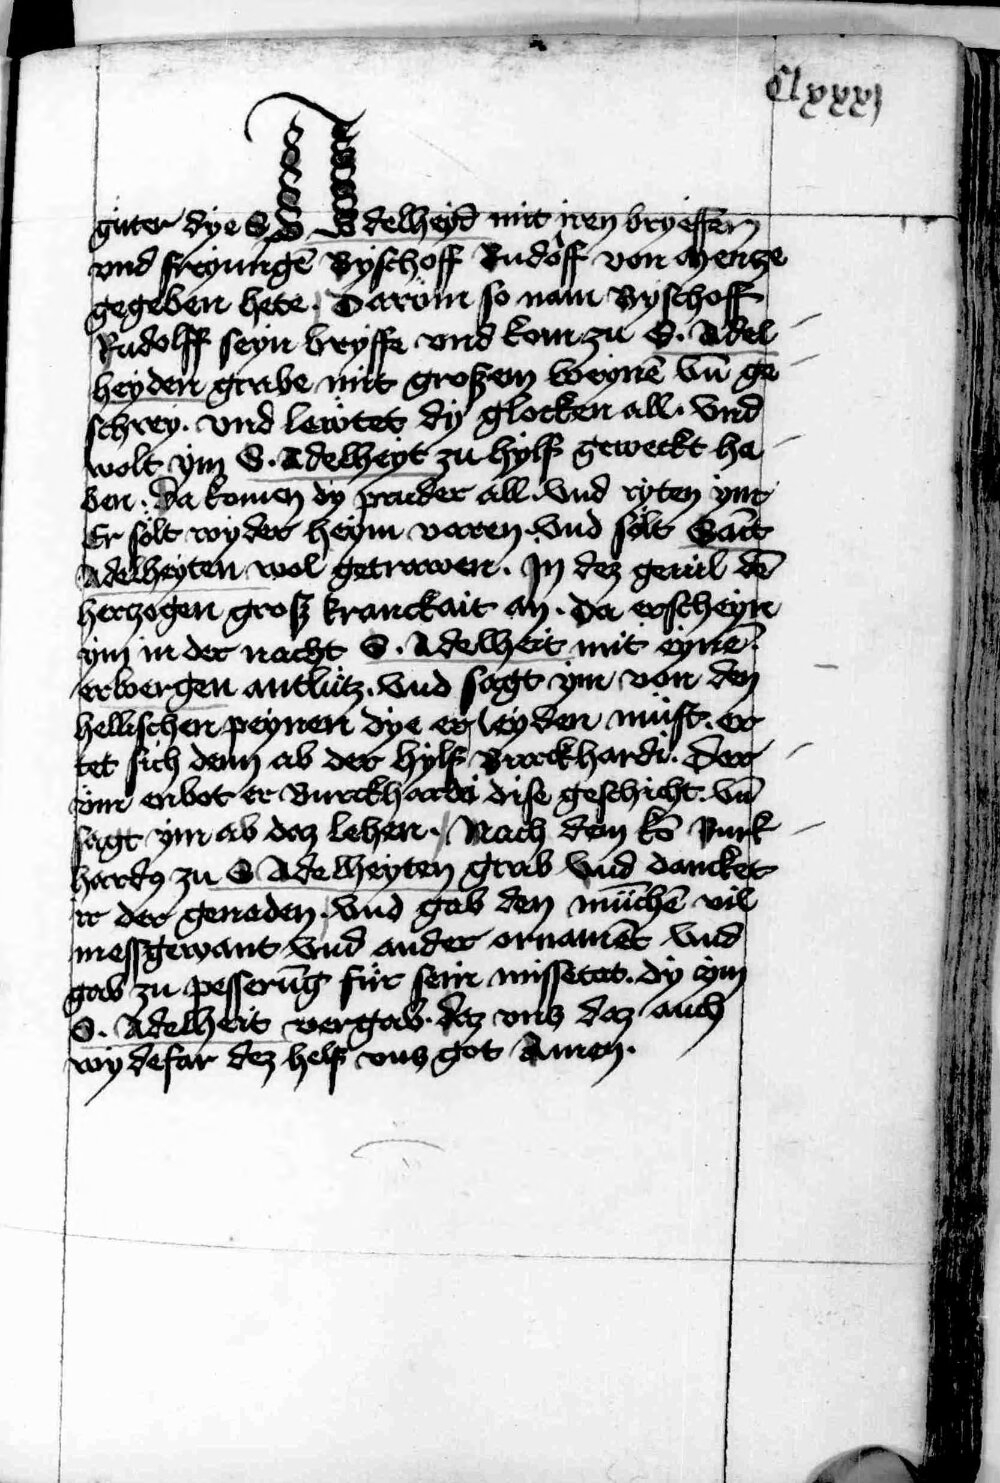 Clxxxj
güter dye S. Adelheyd mit iren bryeffen
vnd freyungē Byschoff Rudolff von Mentze
gegeben hete. Darōm so nam Byschoff
Rudolff seyn bryffe vnd kom zu S. Adel
heyden grabe mit groszem weynē vn̄ ge
schrey. vnd lewtet dy glocken all. vnd
wolt ym S. Adelheyt zu hylf geweckt ha
ben. Da komen dy pruder all. vnd ryten ym
Er sölt wyder heym varen. vnd sölt San̄t
Adelheyten wol getrawen. In dez geuil dē
herczogen grosz kranckait an. Da erscheyn
ym in der nacht S. Adelheit mit eynē
erbergen antlütz. vnd sagt ym von den
hellischen peynen dye er leyden müst. er
tet sich denn ab der hylf Burckhardi. Dar
üm enbot er Burckhardi dise geschicht. vn̄
sagt ym ab daz lehen. Nach dem kō Burk
hardꝰ zu S Adelheyten grab vnd dancket
ir der genaden. vnd gab den müchē vil
messgewant vnd ander ornamēt vnd
gab zu pesserūg für sein missetat. dy ym
S. Adelheit vergab. daz vns daz auch
wydefar dez helf vns got Amen.